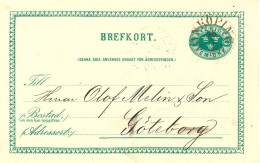 BREFKORT.
(DENNA SIDA ANVÄNDES ENDAST FÖR ADRESSSKRIFT.)
Till
Herrar Olof Melin & Son
(Bostad:
(Adressort:)
Göteborg